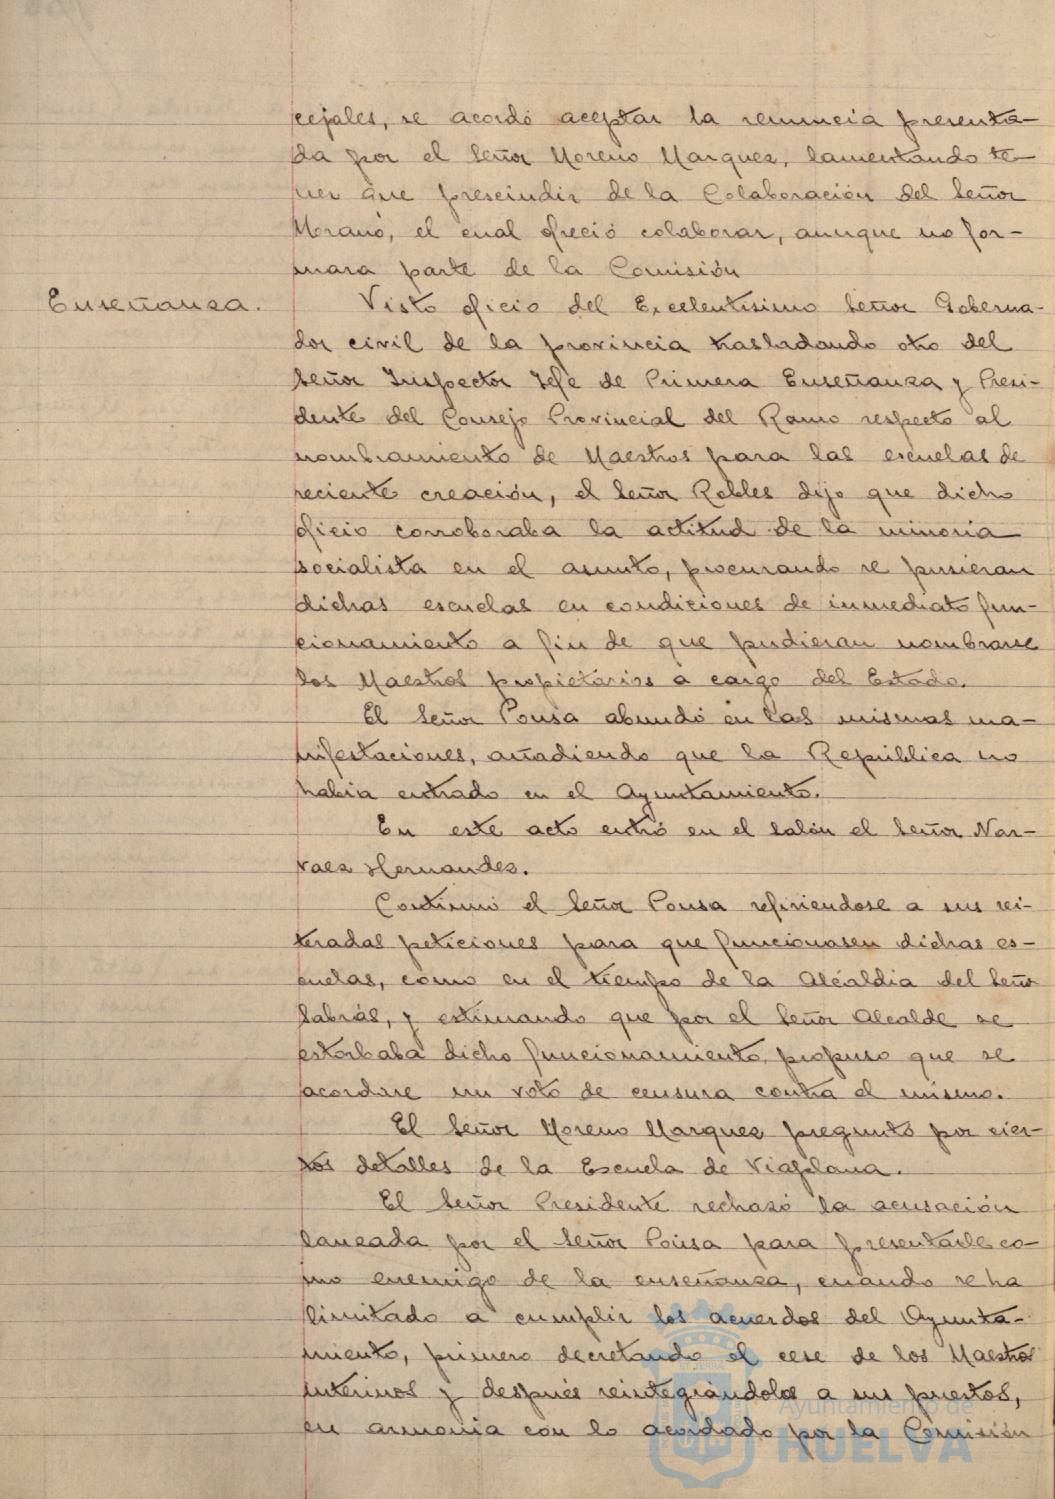 cejales, se acordó aceptar la renuncia presenta-
da por el Señor Moreno Marquez, lamentando te-
ner que prescindir de la Colaboración del Señor
Moreno, el cual ofreció colaborar, aunque no for-
mara parte de la Comisión
Enseñanza.
Visto oficio del Excelentisimo Señor Goberna-
dor civil de la provincia trasladando otro del
Señor Inspector Jefe de Primera Enseñanza y Presi-
dente del Consejo Provincial del Ramo respecto al
nombramiento de Maestros para las escuelas de
reciente creación, el Señor Robles dijo que dicho
oficio corroboraba la actitud de la minoria
socialista en el asunto, procurando se pusieran
dichas escuelas en condiciones de inmediato fun-
cionamiento a fin de que pudieran nombrarse
los Maestros propietarios a cargo del Estado.
El Señor Pousa abundó en las mismas ma-
nifestaciones, añadiendo que la República no
habia entrado en el Ayuntamiento.
En este acto entró en el salón el Señor Nar-
vaez Hernandez.
Continuó el Señor Pousa refiriendose a sus rei-
teradas peticiones para que funcionasen dichas es-
cuelas, como en el tiempo de la Alcaldia del Señor
Sabrás, y estimando que por el Señor Alcalde se
estorbaba dicho funcionamiento, propuso que se
acordase un voto de censura contra el mismo.
El Señor Moreno Marquez preguntó por cier-
tos detalles de la Escuela de Viaplana.
El Señor Presidente rechazó la acusación
lanzada por el Señor Pousa para presentarle co-
mo enemigo de la enseñanza, cuando se ha
limitado a cumplir los acuerdos del Ayunta-
miento, primero decretando el cese de los Maestros
interinos y después reintegrándolos a sus puestos,
en armonia con lo acordado por la Comisión
Ayuntamiento de
HUELVA